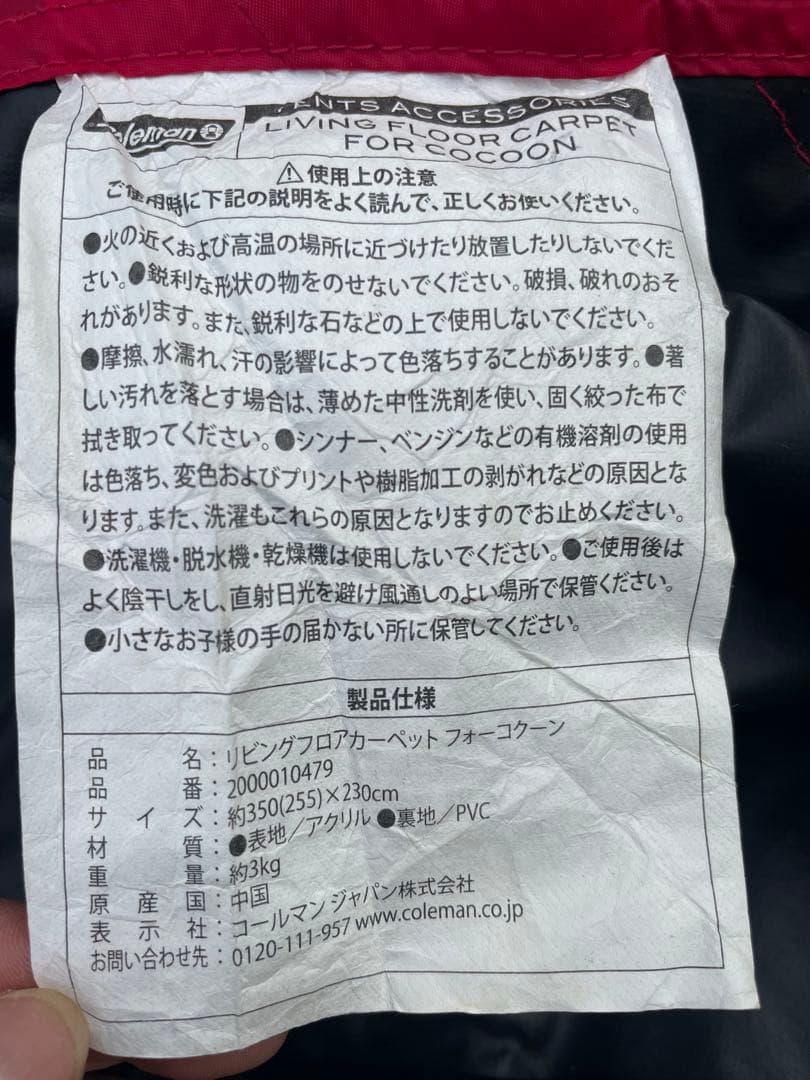 Coleman
TENTS ACCESSORIES
LIVING FLOOR CARPET
FOR COCOON
⚠使用上の注意
ご使用時に下記の説明をよく読んで、正しくお使いください。
●火の近くおよび高温の場所に近づけたり放置したりしないでくだ
さい。●鋭利な形状の物をのせないでください。破損、破れのおそ
れがあります。また、鋭利な石などの上で使用しないでください。
●摩擦、水濡れ、汗の影響によって色落ちすることがあります。●著
しい汚れを落とす場合は、薄めた中性洗剤を使い、固く絞った布で
拭き取ってください。●シンナー、ベンジンなどの有機溶剤の使用
は色落ち、変色およびプリントや樹脂加工の剥がれなどの原因とな
ります。また、洗濯もこれらの原因となりますのでお止めください。
●洗濯機・脱水機・乾燥機は使用しないでください。●ご使用後は
よく陰干しをし、直射日光を避け風通しのよい場所で保管ください。
●小さなお子様の手の届かない所に保管してください。
製品仕様
品名：リビングフロアカーペット フォーコクーン
品番：2000010479
サイズ：約350(255)×230cm
材質：●表地／アクリル ●裏地／PVC
重量：約3kg
原産国：中国
表示社：コールマン ジャパン株式会社
お問い合わせ先：0120-111-957 www.coleman.co.jp